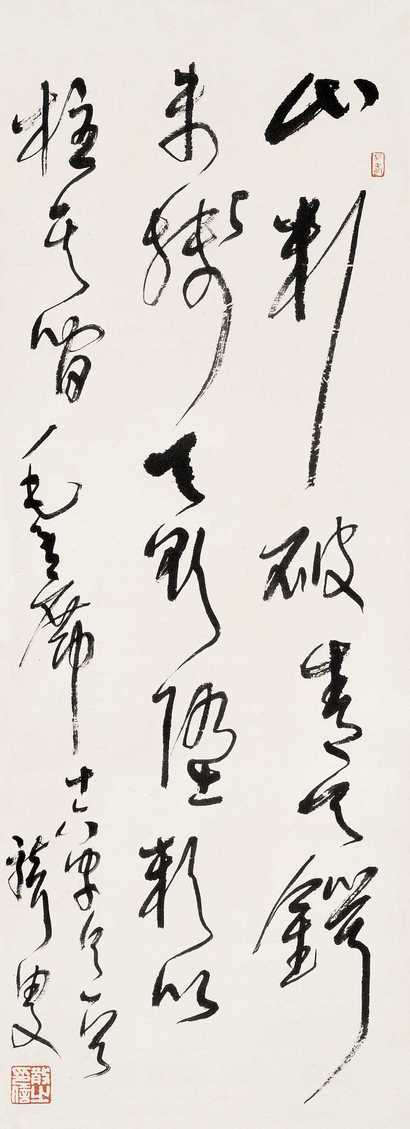 山刺破青天鍔
未殘天欲墮賴以
柱其間毛主席
十六字令一首
聾叟